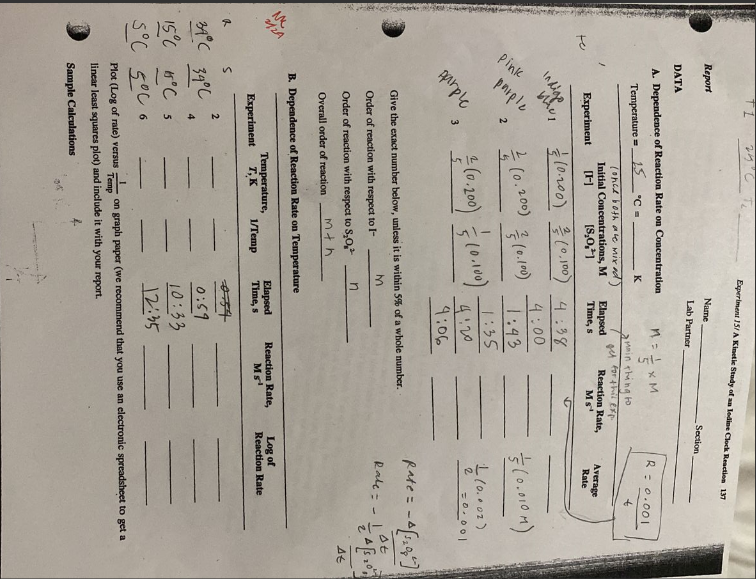 Experiment 15/ A Kinetic Study of an Iodine Clock Reaction 137
Report
Name
Section
Lab Partner
DATA
A. Dependence of Reaction Rate on Concentration
Temperature = 25 °C = K
(once both are mixed)
M = 1/5 × M
R = 0.001 / t
main thing to get for this exp.
Experiment
Initial Concentrations, M
[I-] [S₂O₈²⁻]
Elapsed Time, s
Reaction Rate, M s⁻¹
Average Rate
indigo blue 1 1/5 (0.200) 2/5 (0.100) 4:38
4:00
pink purple 2 2/5 (0.200) 2/5 (0.100) 1:43 1/5 (0.010 M)
1:35 1/2 (0.002) = 0.001
purple 3 2/5 (0.200) 1/5 (0.100) 4:20
4:06
Rate = - Δ[S₂O₈²⁻] / Δt
Rate = - 1/2 Δ[S₂O₃²⁻] / Δt
Give the exact number below, unless it is within 5% of a whole number.
Order of reaction with respect to I- m
Order of reaction with respect to S₂O₈²⁻ n
Overall order of reaction m + n
B. Dependence of Reaction Rate on Temperature
Experiment
Temperature, T, K
1/Temp
Elapsed Time, s
Reaction Rate, M s⁻¹
Log of Reaction Rate
R S
2 0:54
39°C 39°C 4 0:59
15°C 5 10:33
5°C 5°C 6 12:35
Plot (Log of rate) versus 1/Temp on graph paper (we recommend that you use an electronic spreadsheet to get a
linear least squares plot) and include it with your report.
Sample Calculations